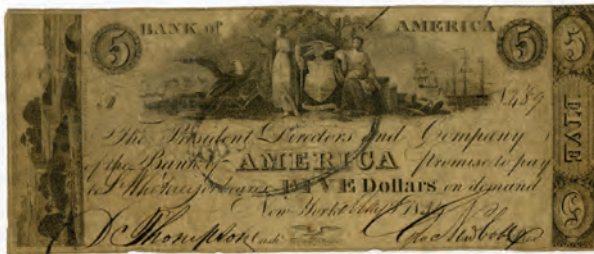 5 BANK of AMERICA 5
A N. 489
The President Directors and Company
of the Bank of AMERICA promise to pay
to or bearer FIVE Dollars on demand
New York
D Thompson Cash. Geo Newbold
5 FIVE 5